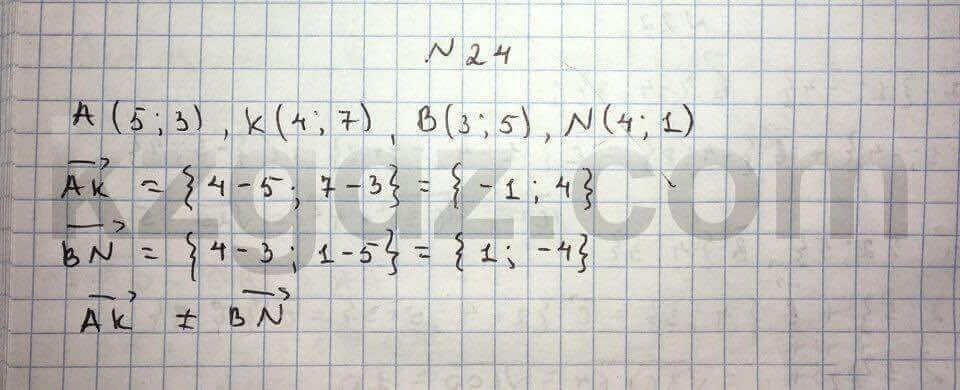 N 24
A (5; 3), K(4; 7), B(3; 5), N(4; 1)
\overrightarrow{AK} = {4 - 5; 7 - 3} = {-1; 4}
\overrightarrow{BN} = {4 - 3; 1 - 5} = {1; -4}
\overrightarrow{AK} ≠ \overrightarrow{BN}
kzgdz.com